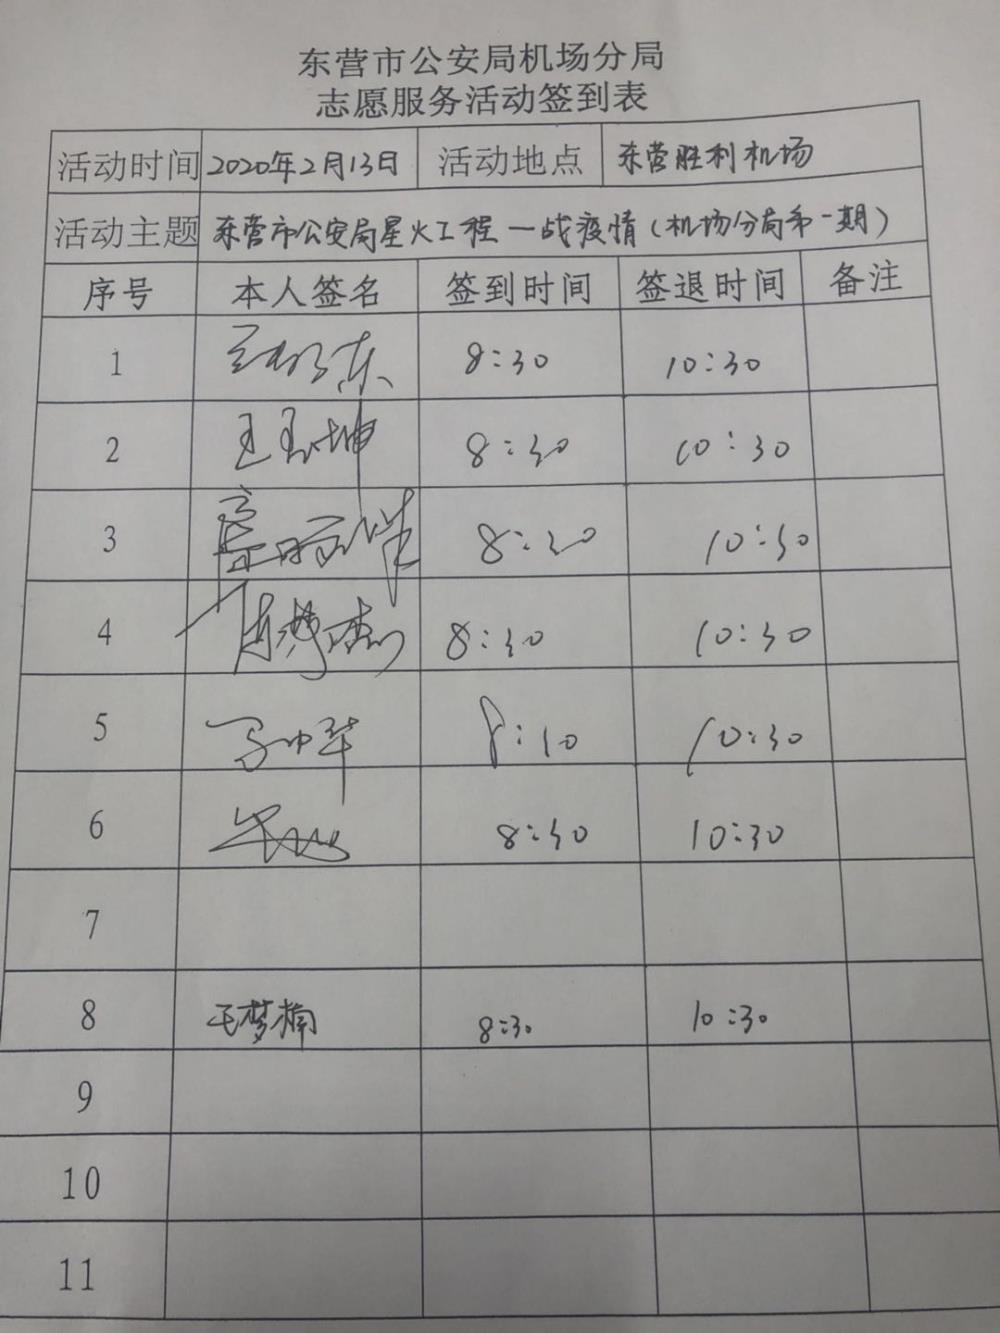 东营市公安局机场分局
志愿服务活动签到表
活动时间 2020年2月13日 活动地点 东营胜利机场
活动主题 东营市公安局星火工程一战疫情(机场分局第一期)
序号 本人签名 签到时间 签退时间 备注
1 8:30 10:30
2 王玉坤 8:30 10:30
3 8:30 10:30
4 8:30 10:30
5 马中华 8:10 10:30
6 8:30 10:30
7
8 王梦楠 8:30 10:30
9
10
11